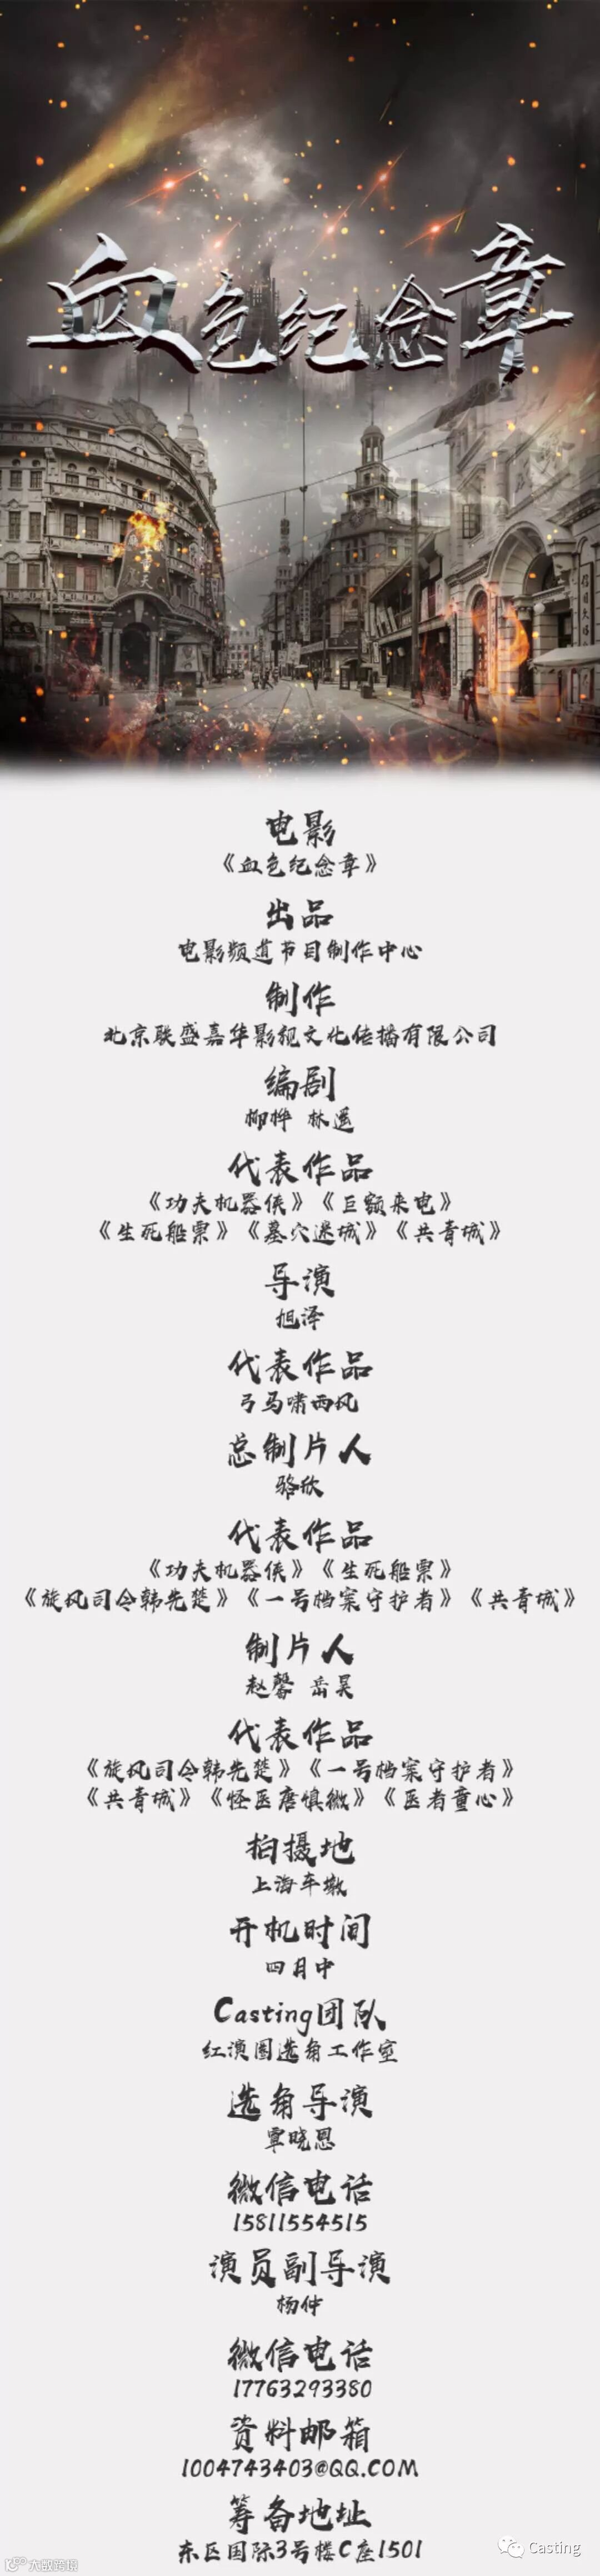 血色纪念章
电影
《血色纪念章》
出品
电影频道节目制作中心
制作
北京联盛嘉华影视文化传播有限公司
编剧
柳桦 林遥
代表作品
《功夫机器侠》《巨额来电》
《生死船票》《墓穴迷城》《共青城》
导演
旭泽
代表作品
弓马啸西风
总制片人
骆欣
代表作品
《功夫机器侠》《生死船票》
《旋风司令韩先楚》《一号档案守护者》《共青城》
制片人
赵馨 岳昊
代表作品
《旋风司令韩先楚》《一号档案守护者》
《共青城》《怪医唐慎微》《医者童心》
拍摄地
上海车墩
开机时间
四月中
Casting团队
红演圈选角工作室
选角导演
覃晓恩
微信电话
15811554515
演员副导演
杨仲
微信电话
17763293380
资料邮箱
1004743403@QQ.COM
筹备地址
东区国际3号楼C座1501
Casting
大数跨境